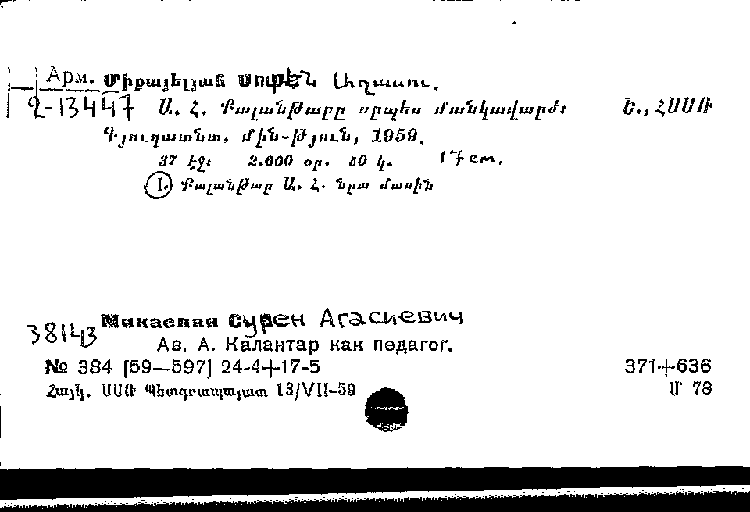 Арм. Միքայելյան Սուրեն Աղասու.
2-13447 Ա. Հ. Քալանթարը որպես մանկավարժ: Ե., ՀՍՍՌ
Գյուղատնտ. մին-թյուն, 1959.
37 էջ: 2.000 օր. 80 կ. 17 cm.
I. Քալանթար Ա. Հ. նրա մասին
38143 Микаелян Сурен Агасиевич
Ав. А. Калантар как педагог.
№ 384 [59—597] 24-4+17-5 371+636
Հայկ. ՍՍՌ Պետգրապալատ 13/VII-59 Մ 78